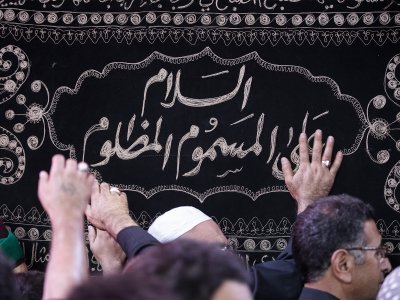 السلام
على المسموم المظلوم